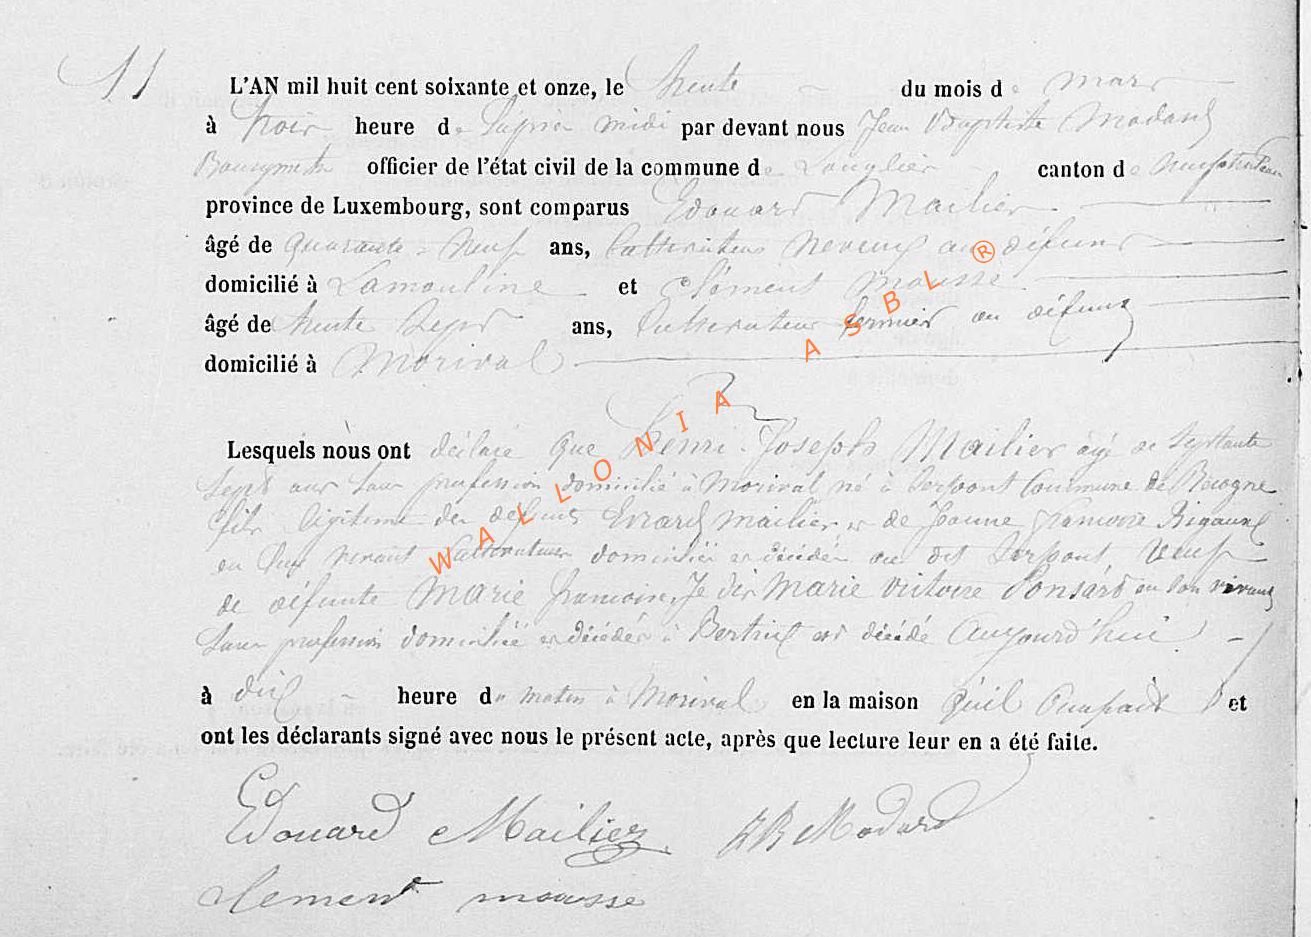 11
L'AN mil huit cent soixante et onze, le trente du mois de mars
à trois heure de l'apres midi par devant nous Jean Baptiste Modard
Bourgmestre officier de l'état civil de la commune de Longlier canton de Neufchateau
province de Luxembourg, sont comparus Edouard Mailier
âgé de quarante-neuf ans, Cultivateur neveu au défunt
domicilié à Lamouline et Clément Mousse
âgé de trente sept ans, Cultivateur fermier au défunt
domicilié à Morival
Lesquels nous ont déclaré que Henri Joseph Mailier agé de septante
sept ans sans profession domicilié à Morival né à Serpont Commune de Recogne
fils légitime des défunts Evrard Mailier et de Jeanne françoise Rigaux
en leur vivant Cultivateurs domiciliés et décédés au dit Serpont veuf
de défunte Marie françoise, Je dis Marie victoire Ponsard en son vivant
sans profession domiciliée et décédée à Bertrix est décédé aujourd'hui
à dix heure du matin à Morival en la maison qu'il occupait et
ont les déclarants signé avec nous le présent acte, après que lecture leur en a été faite.
Edouard Mailier JB Modard
Clement mousse
WALLONIA ASBL ®